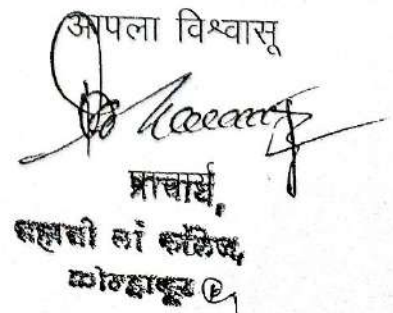 आपला विश्वासू
प्राचार्य,
शहाजी लॉ कॉलेज,
कोल्हापूर